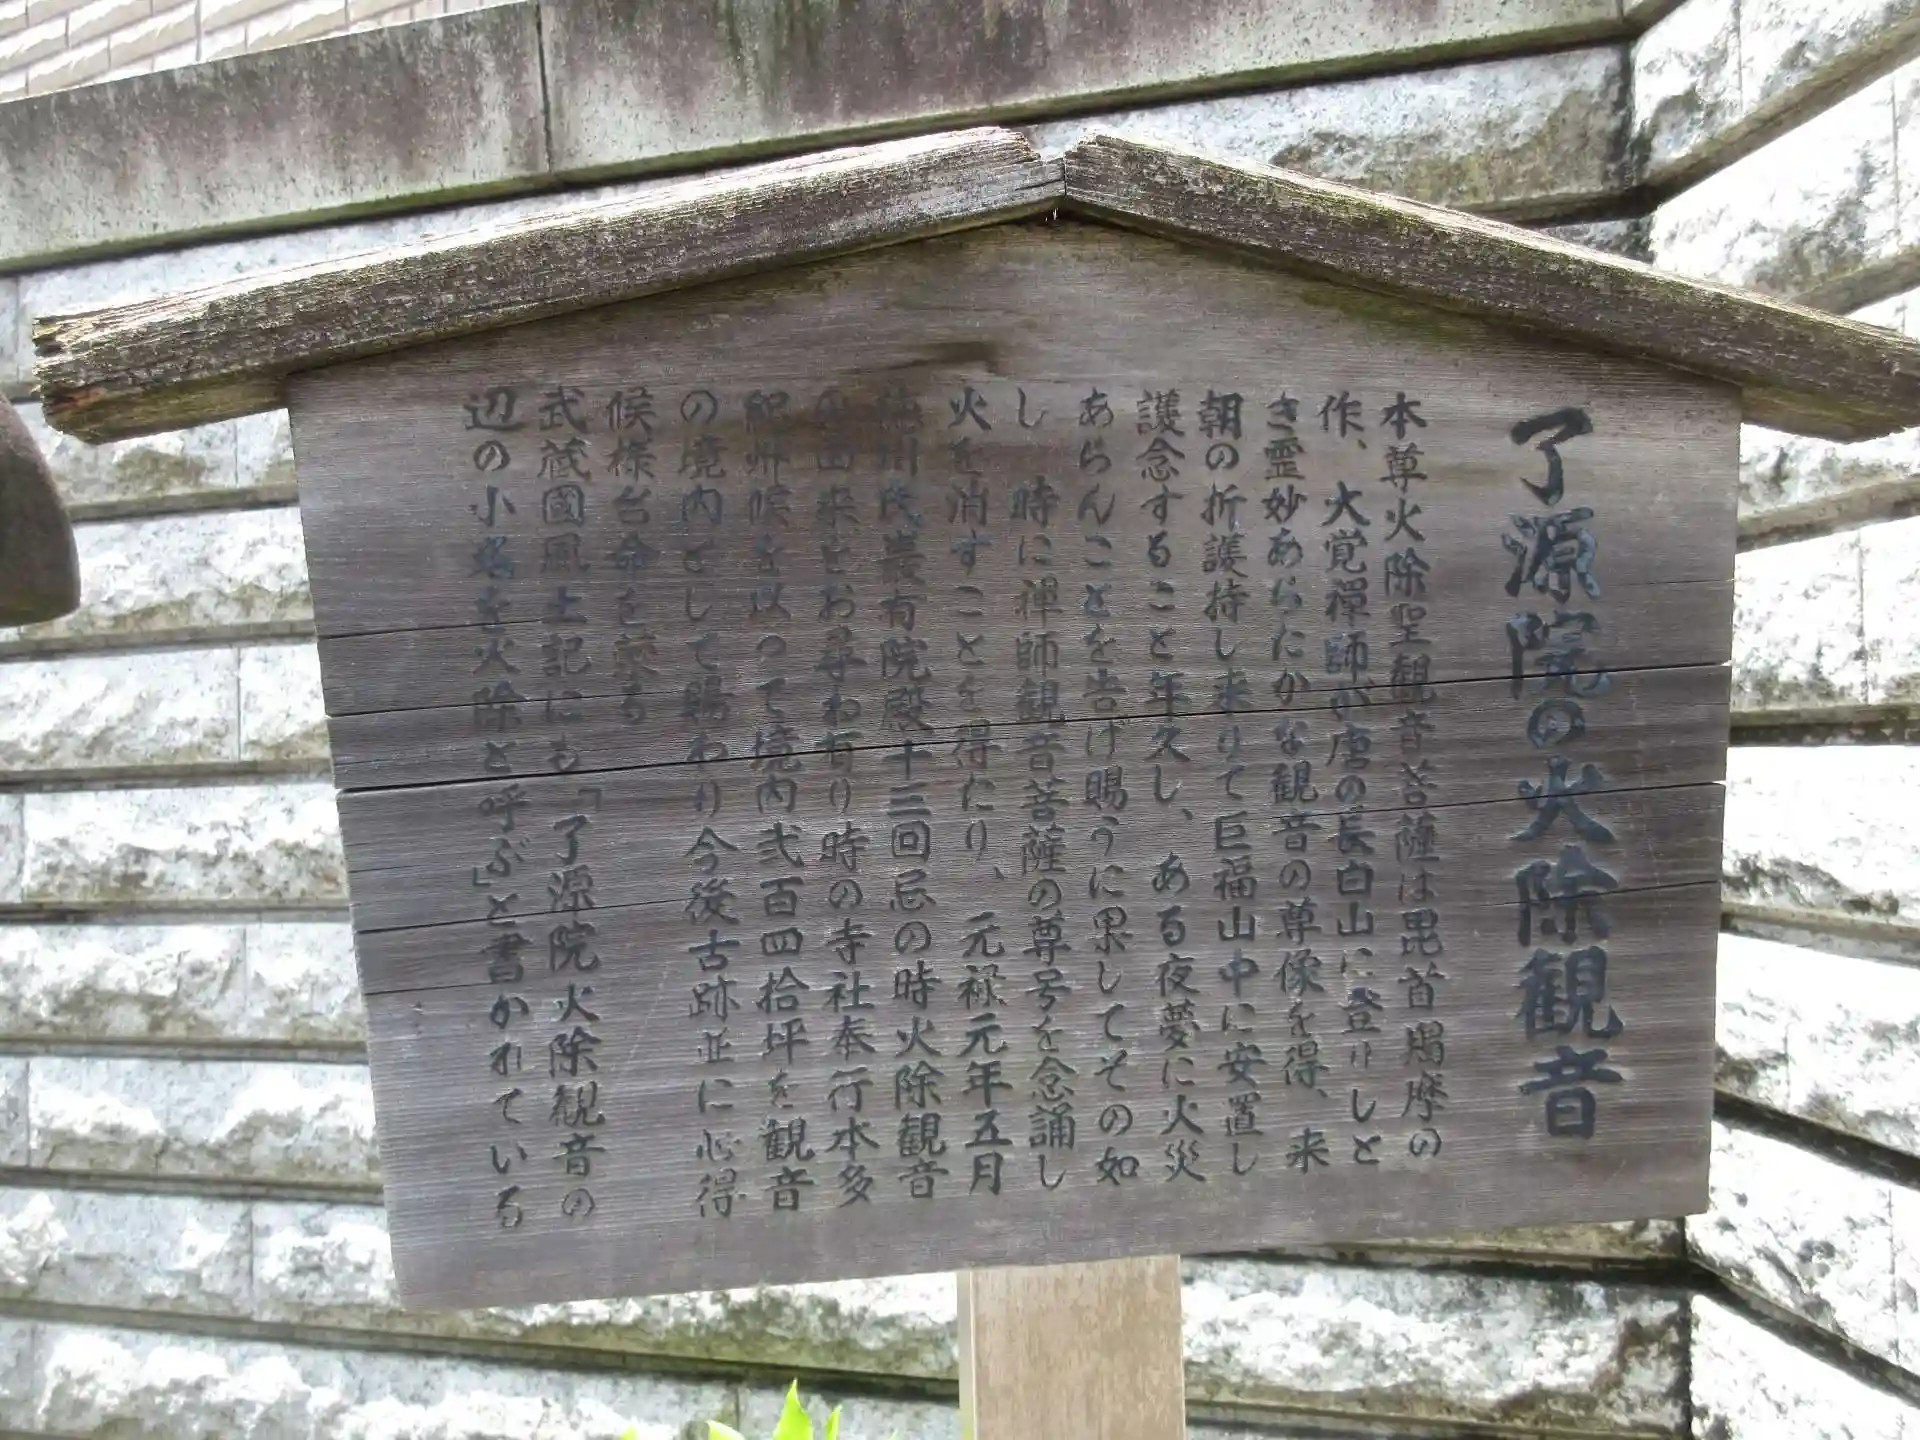 了源院の火除観音
本尊火除聖観音菩薩は毘首羯摩の
作、大覚禅師が唐の長白山に登りしと
き霊妙あらたかな観音の尊像を得、来
朝の折護持し来りて巨福山中に安置し
護念すること年久し、ある夜夢に火災
あらんことを告げ賜うに果してその如
し 時に禅師観音菩薩の尊号を念誦し
火を消すことを得たり、元禄元年五月
徳川氏嚴有院殿十三回忌の時火除観音
の由来をお尋わ有り時の寺社奉行本多
紀州候を以って境内弐百四拾坪を観音
の境内として賜わり今後古跡並に心得
候様台命を蒙る
武蔵國風土記にも「了源院火除観音の
辺の小名を火除と呼ぶ」と書かれている